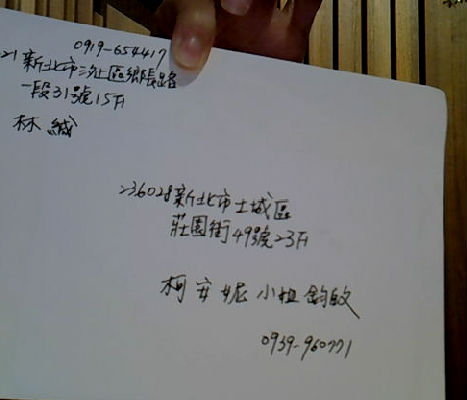 0919-654417
21新北市汐止區鄉長路
一段31號15F
林 緘
236028新北市土城區
莊園街49號23F
柯安妮小姐鈞啟
0939-960771